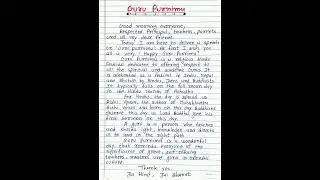 Guru Purnima
Good morning everyone,
Respected Principal, teachers, parents
and all my dear friends.
Today I am here to deliver a speech
on 'Guru Purnima'. At first I wish you
all a very 'Happy Guru Purnima'.
Guru Purnima is a religious Hindu
festival dedicated to offering respect to
all the spiritual and academic Gurus. It
is celebrated as a festival in India, Nepal
and Bhutan by Hindus, Jains and Buddhists.
It typically falls on the full moon day
in the Hindu month of Ashadha.
For Hindus, the day is special as
Rishi Vyasa, the author of Mahabharata
was born on this day. Buddhists
this day as Lord Buddha gave his
first sermon on this day.
A guru is a person who teaches
and knowledge and directs
us to lead in the right path.
Guru Purnima is a wonderful
day that reminds everyone of the
significance of
teachers, mentors and gurus in
culture.
Thank you.
Jai Hind, Jai Bharat